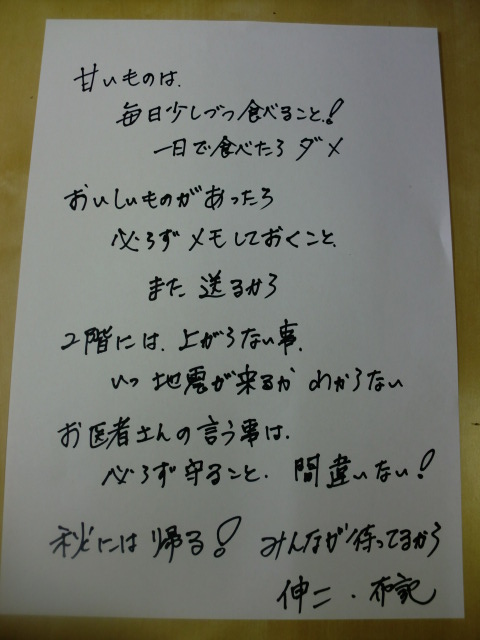 甘いものは、
毎日少しづつ食べること!
一日で食べたら ダメ
おいしいものがあったら
必らず メモしておくこと、
また 送るから
2階には、上がらない事、
いつ 地震が来るか わからない
お医者さんの言う事は、
必らず守ること、間違いない!
秋には 帰る! みんなが待ってるから
伸二・布記